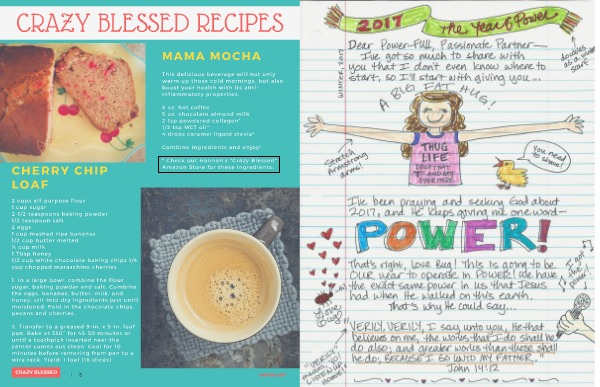 CRAZY BLESSED RECIPES
MAMA MOCHA
This delicious beverage will not only
warm up those cold mornings, but also
boost your health with its anti-
inflammatory properties.
6 oz. hot coffee
5 oz. chocolate almond milk
2 tsp powdered collagen*
1/2 tsp MCT oil*
4 drops caramel liquid stevia*
Combine ingredients and enjoy!
* Check out Hannah's "Crazy Blessed"
Amazon Store for these ingredients.
CHERRY CHIP
LOAF
2 cups all purpose flour
1 cup sugar
2 1/2 teaspoons baking powder
1/2 teaspoon salt
2 eggs
1 cup mashed ripe bananas
1/2 cup butter melted
1 Tbsp honey
1/2 cup white chocolate baking chips 1/4
cup chopped maraschino cherries
1. In a large bowl, combine the flour,
sugar, baking powder and salt. Combine
the eggs, bananas, butter, milk, and
honey; stir into dry ingredients just until
moistened. Fold in the chocolate chips,
pecans and cherries.
2. Transfer to a greased 9-in. x 5-in. loaf
pan. Bake at 350° for 45-50 minutes or
until a toothpick inserted near the
center comes out clean. Cool for 10
minutes before removing from pan to a
wire rack. Yield: 1 loaf (16 slices).
CRAZY BLESSED
2017 The Year of Power
WINTER, 2017
Dear Power-Full, Passionate Partner—
I've got so much to share with
you that I don't even know where to
start, so I'll start with giving you...
doubles as a winter scarf
A BIG FAT HUG!
Stretch
Armstrong
arms!
THUG
LIFE
You need
to shave!
I've been praying and seeking God about
2017, and He keeps giving me one word—
POWER!
That's right, Love Bug! This is going to be
OUR year to operate in POWER! We have
the exact same power in us that Jesus
had when He walked on this earth.
That's why He could say...
I got
the
Love
Bug!
"VERILY, VERILY, I say unto you, He that
believes on me, the works that I do shall he
do also; and greater works than these shall
he do, BECAUSE I GO UNTO MY FATHER."
John 14:12